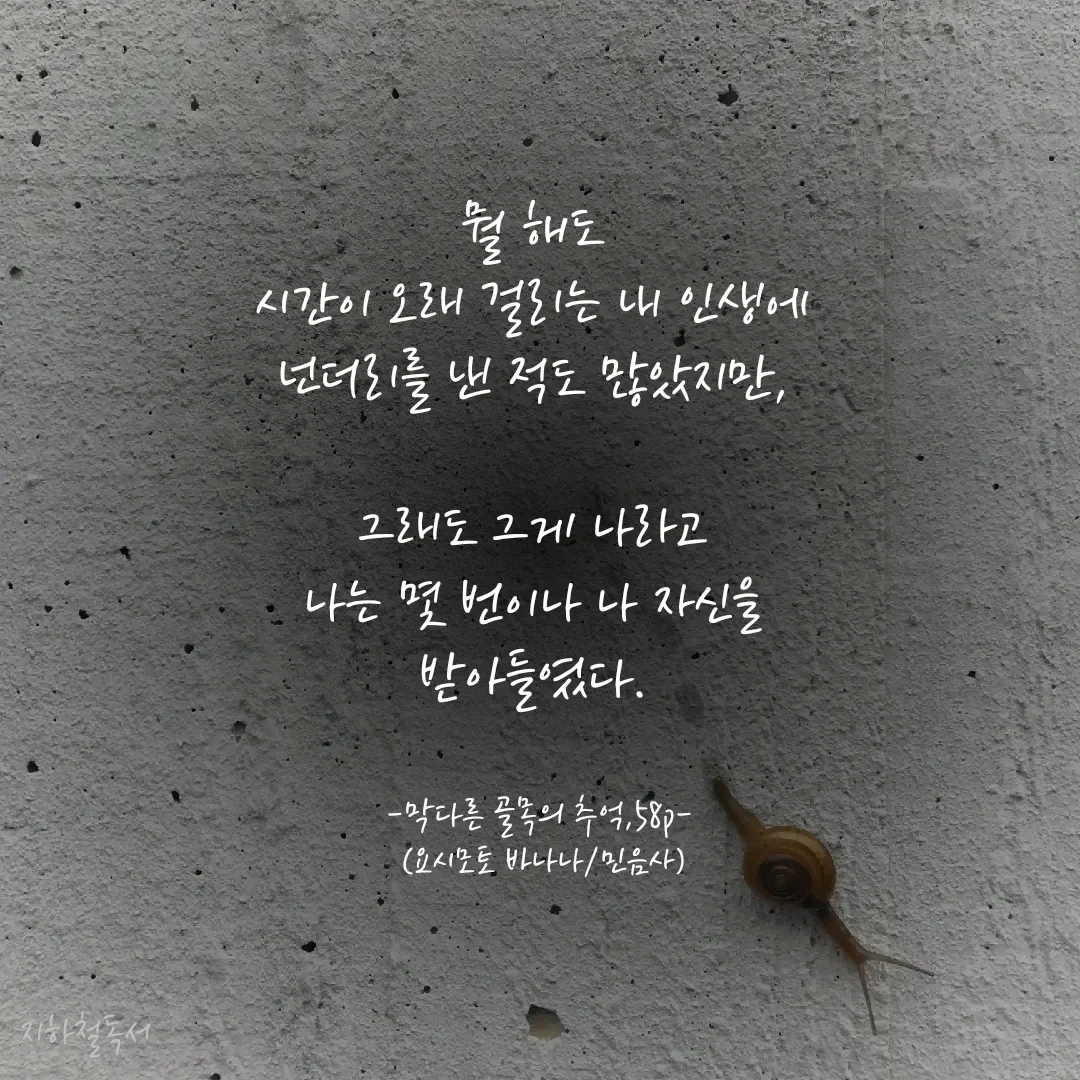 뭘 해도
시간이 오래 걸리는 내 인생에
넌더리를 낸 적도 많았지만,
그래도 그게 나라고
나는 몇 번이나 나 자신을
받아들였다.
-막다른 골목의 추억,58p-
(요시모토 바나나/민음사)
지하철독서